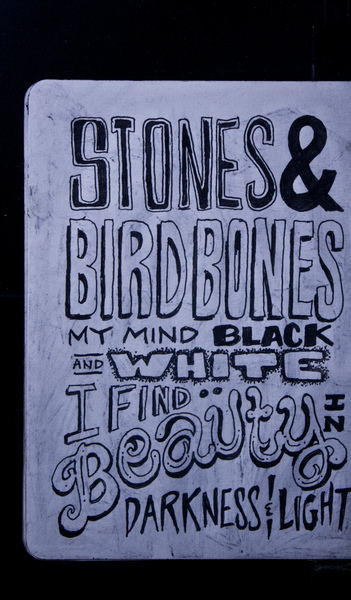 STONES &
BIRDBONES
MY MIND BLACK
AND WHITE
I FIND
Beauty IN
DARKNESS & LIGHT